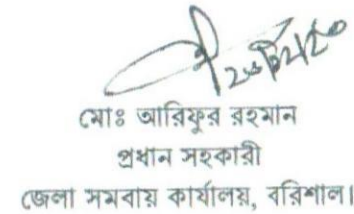 মোঃ আরিফুর রহমান
প্রধান সহকারী
জেলা সমবায় কার্যালয়, বরিশাল।